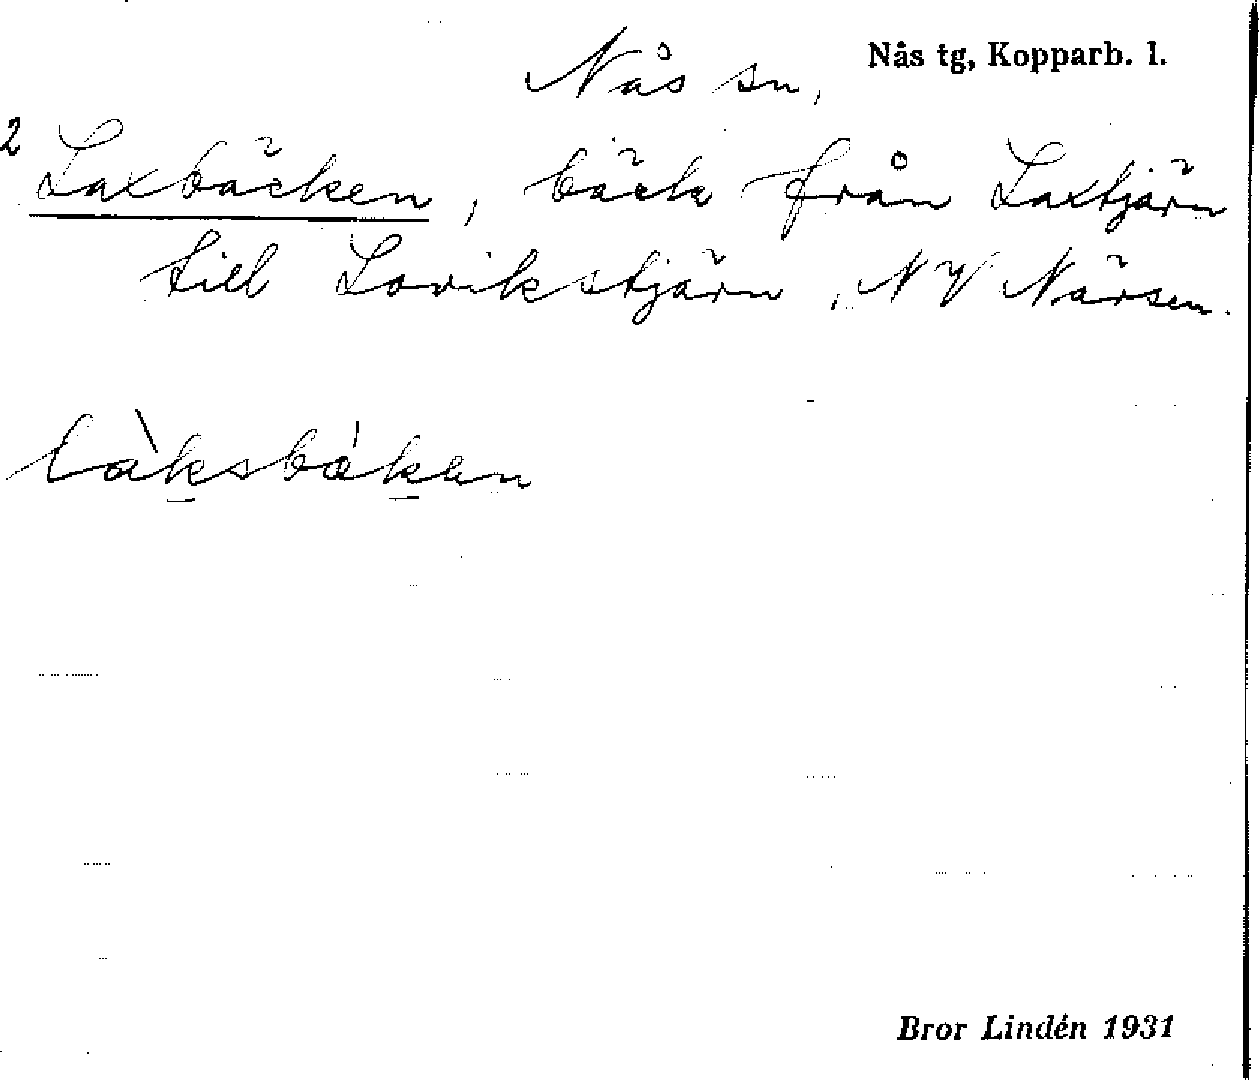 Nås tg, Kopparb. l.
Nås sn,
2 Laxbäcken, bäck från Laxtjärn
till Lovikstjärn, NV Närsen.
làksbàkan
Bror Lindén 1931